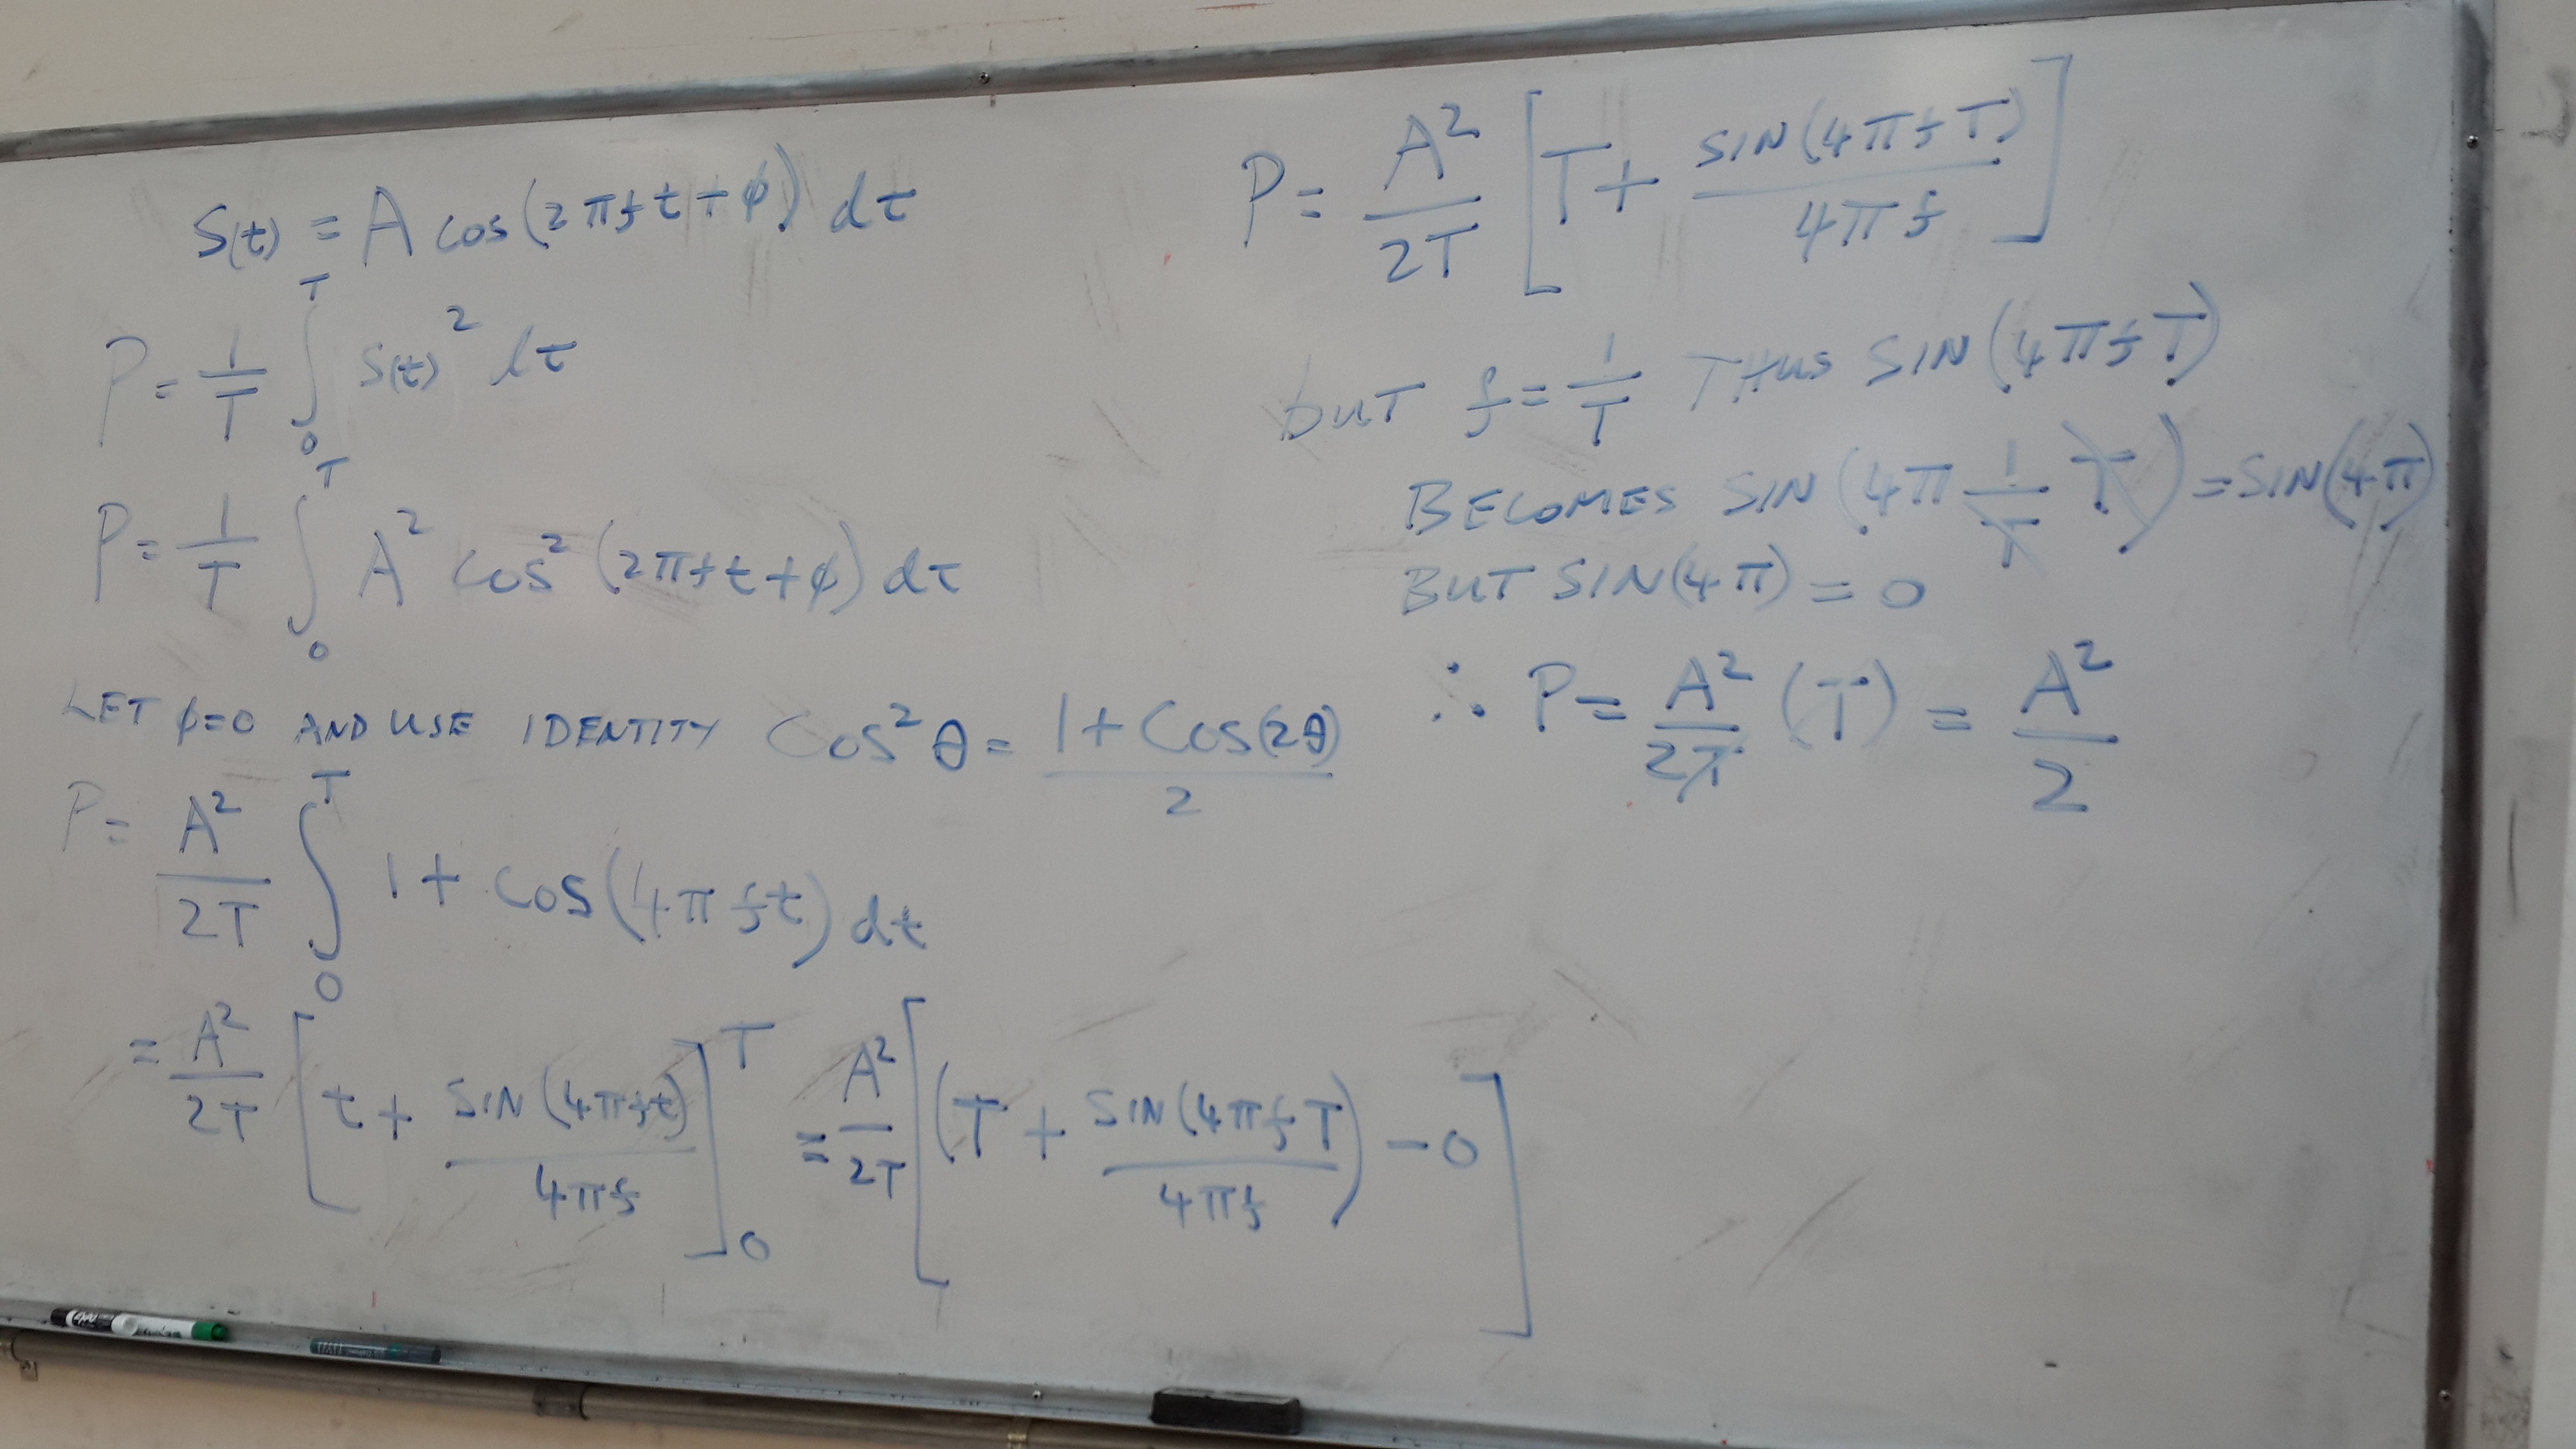 S(t) = A cos(2πft + φ) dt
P = 1/T ∫₀ᵀ S(t)² dt
P = 1/T ∫₀ᵀ A² cos² (2πft + φ) dt
LET φ=0 AND USE IDENTITY Cos²θ = (1 + Cos(2θ))/2
P = A²/2T ∫₀ᵀ 1 + Cos(4πft) dt
= A²/2T [t + SIN(4πft)/4πf]₀ᵀ = A²/2T [(T + SIN(4πfT)/4πf) - 0]
P = A²/2T [T + SIN(4πfT)/4πf]
but f = 1/T THUS SIN(4πfT)
BECOMES SIN(4π 1/T T) = SIN(4π)
BUT SIN(4π) = 0
∴ P = A²/2T (T) = A²/2